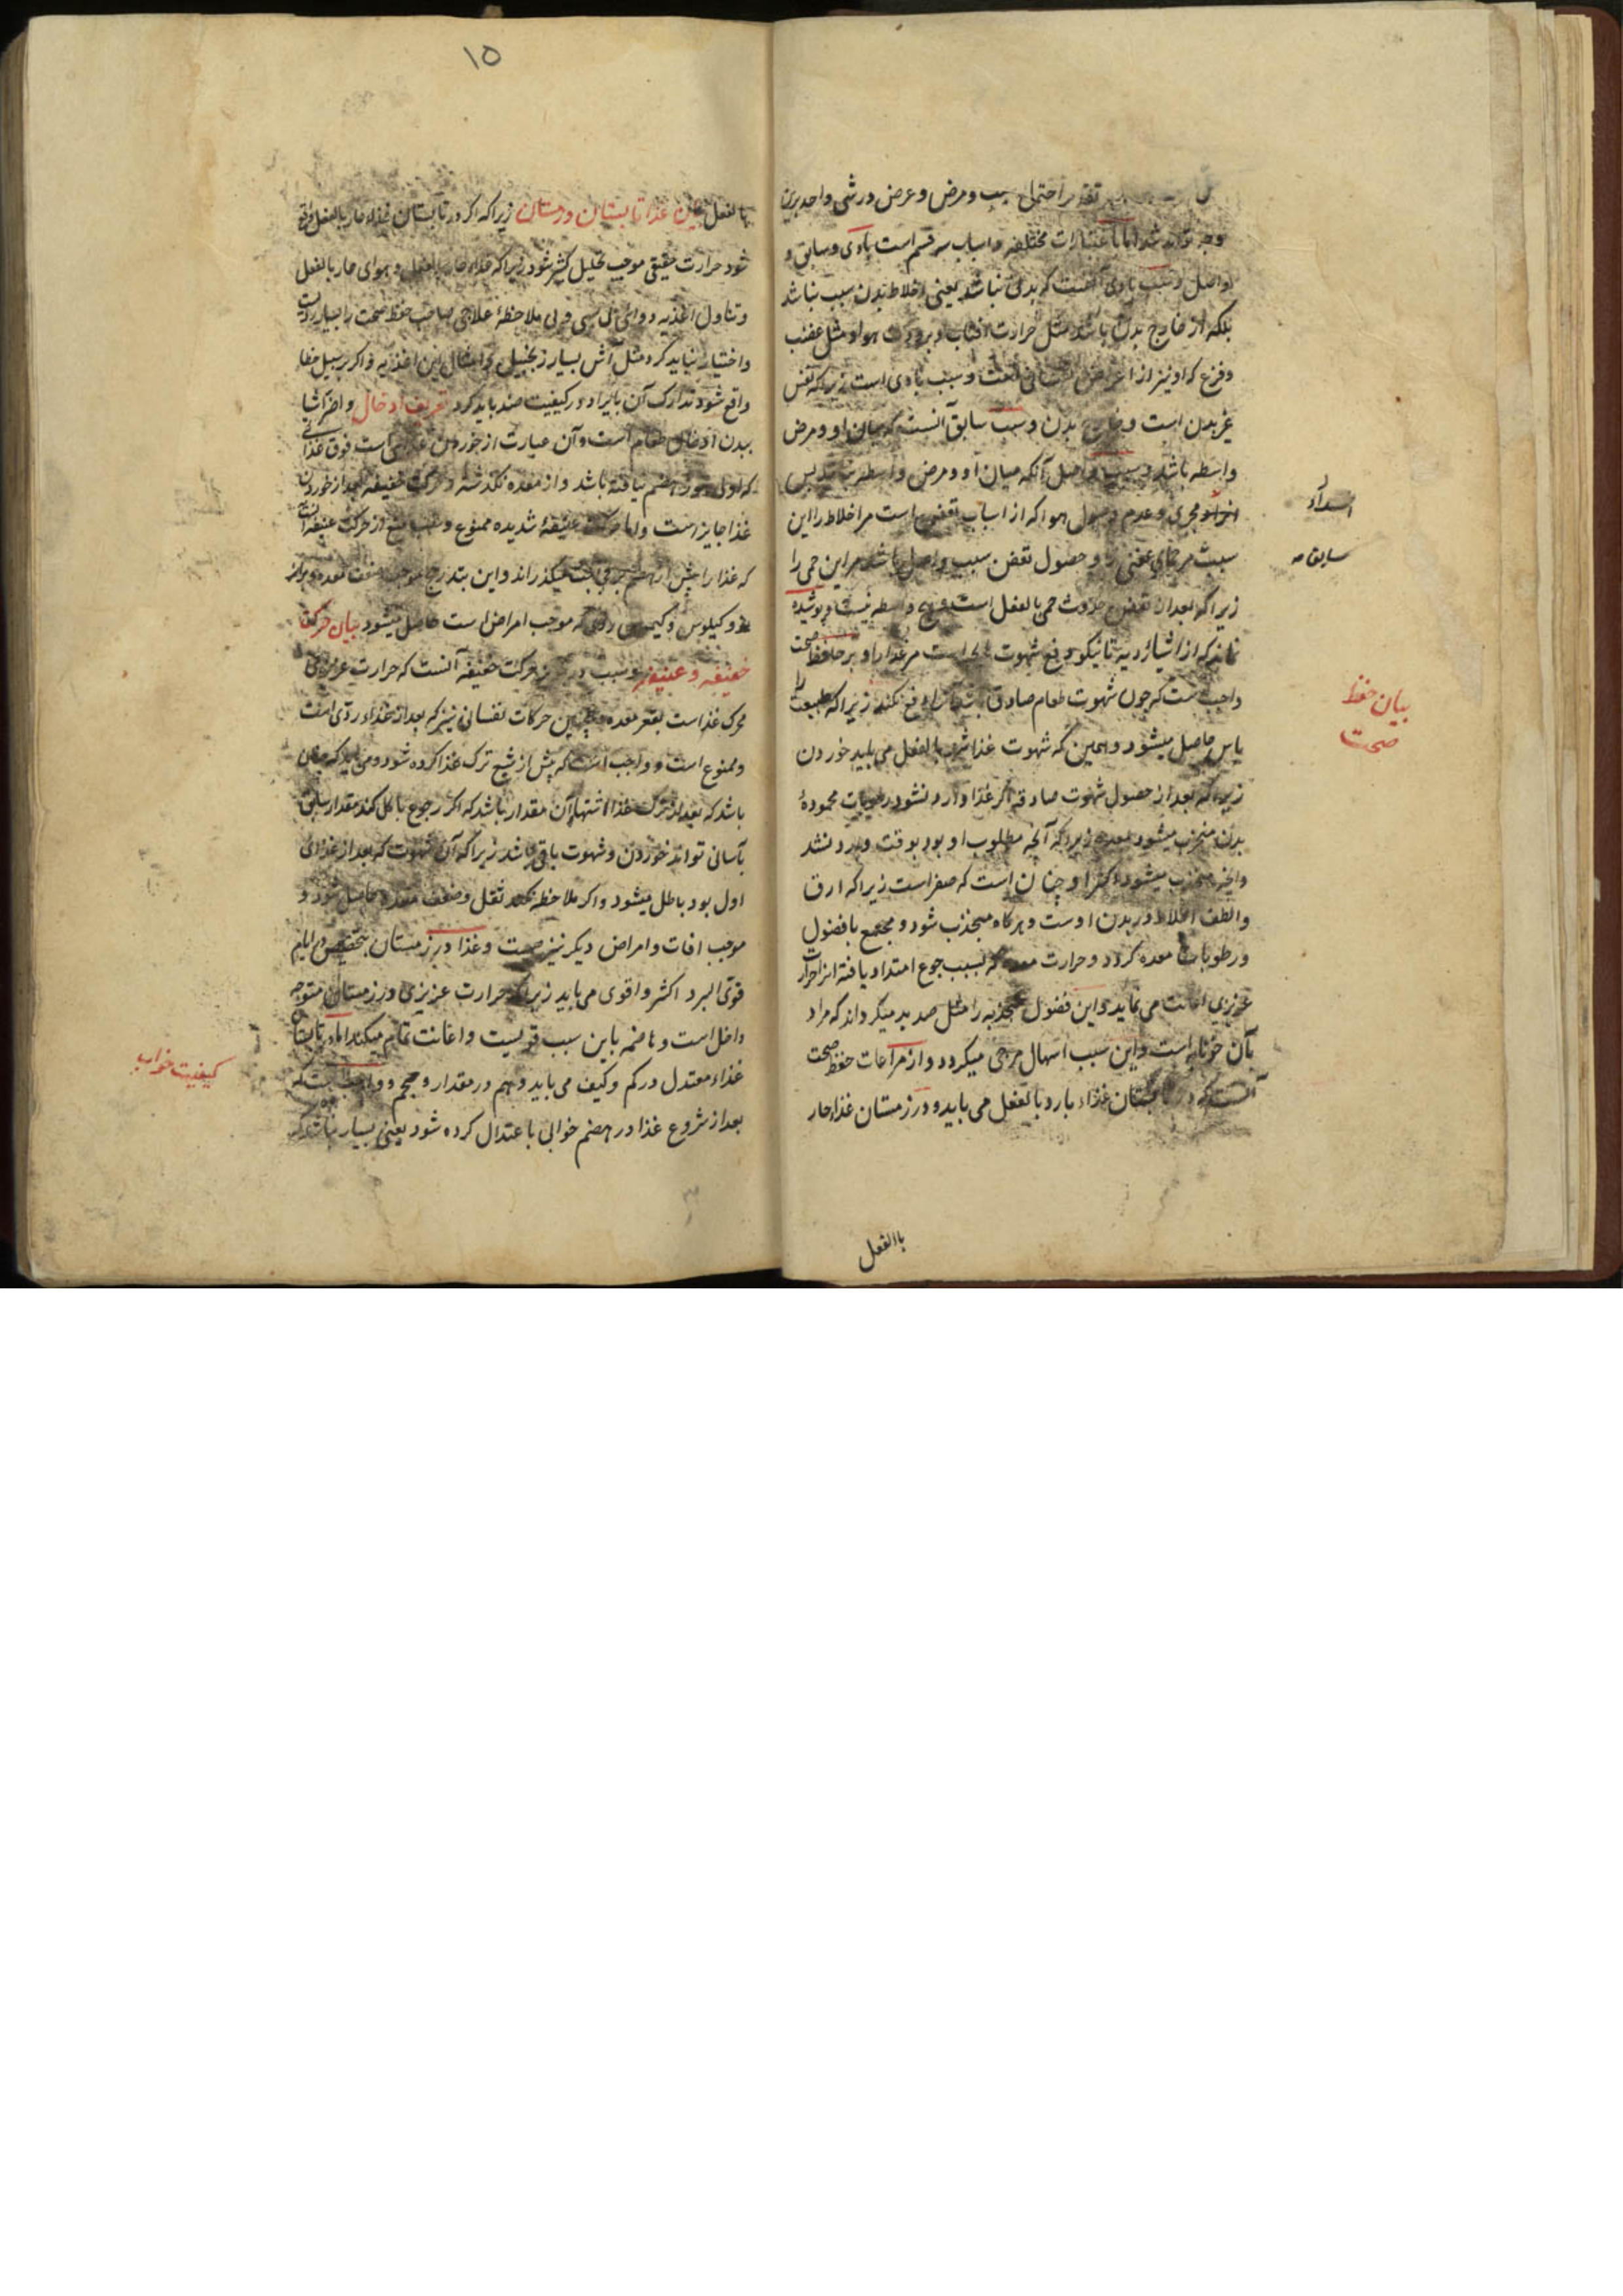 تقدیر احتمال سبب و مرض و عرض در شی واحد برین
وجه تواند شد اما باعتبارات مختلفه و اسباب سه قسم است بادی و سابق و
واصل و سبب بادی آنست که بدنی نباشد یعنی اخلاط بدن سبب نباشد
بلکه از خارج بدن باشد مثل حرارت افتاب و برودت هوا و مثل غضب
و فزع که او نیز از نفسانی است و سبب بادی است زیرا که نفس
غیر بدن است و خارج بدن و سبب سابق آنست که میان او و مرض
واسطه باشد و سبب واصل آنکه میان او و مرض واسطه نباشد پس
مجری و عدم وصول هوا که از اسباب تعفن است مر اخلاط را این
انسداد
سببیت مر حمای عفنی را و حصول تعفن سبب واصل باشد مر این حمی را
سابقا مه
زیرا که بعد از تعفن حدوث حمی بالفعل است و هیچ واسطه نیست و پوشیده
نماند که از اشیاء ردیه تا نیکو دفع شهوت است مر غذا را و بر حافظ صحت
واجب است که چون شهوت طعام صادق باشد آنرا دفع نکند زیرا که طبیعت را
بیان حفظ
صحت
یاس حاصل میشود و همین که شهوت غذا شد بالفعل می باید خوردن
زیرا که بعد از حصول شهوت صادقه اگر غذا وارد نشود رطوبات محمودهٔ
بدن منجذب میشود بمعده زیرا که آنچه مطلوب او بود بوقت وارد نشد
و آنچه منجذب میشود اکثر او چنان است که صفراست زیرا که ارق
و الطف اخلاط در بدن اوست و هرگاه منجذب شود و مجتمع با فضول
و رطوبات معده گردد و حرارت معده که بسبب جوع امتداد یافته انرا حرارت
غریزی اعانت می نماید و این فضول منجذبه را مثل صدید میگرداند که مراد
بآن خونابه است و این سبب اسهال مرضی میگردد و از مراعات حفظ صحت
آنست که در تابستان غذاء بارد بالفعل می باید و در زمستان غذاء حار
باالفعل
۱۵
بالفعل بیان غذا تابستان و زمستان زیرا که اگر در تابستان غذاء حار بالفعل واقع
شود حرارت حقیقی موجب تحلیل کثیر شود زیرا که غذاء حار بالفعل و هوای حار بالفعل
و تناول اغذیه دوائی بی ملاحظهٔ علاجی صاحب حفظ صحت را بسیار ردیست
و اختیار نباید کرد مثل آش بسیار زنجبیل و امثال این اغذیه و اگر بر سبیل خطا
واقع شود تدارک آن بایراد در کیفیت ضد باید کرد تعریف ادخال و اضر اشیا
ببدن ادخال طعام است و آن عبارت از خوردن غذایی است فوق غذائی
که اول هنوز هضم نیافته باشد و از معده نگذشته و حرکت خفیفه بعد از خوردن
غذا جایز است و اما حرکت عنیفهٔ شدیده ممنوع و سبب منع از حرکت عنیفه آنست
که غذا را پیش از هضم میگذراند و این بتدریج موجب ضعف معده
و کیلوس و کیموس ردی که موجب امراض است حاصل میشود بیان حرکة
خفیفه و عنیفه و سبب در حرکت خفیفه آنست که حرارت غریزی
محرک غذاست بقعر معده و همچنین حرکات نفسانی نیز که بعد از غذاء ردی است
و ممنوع است و واجب است که پیش از شبع ترک غذا کرده شود و می باید که چنان
باشد که بعد از ترک غذا اشتها آن مقدار باشد که اگر رجوع باکل کند مقدار سابق
بآسانی تواند خوردن و شهوت باقی باشد زیرا که آن شهوت که بعد از غذای
اول بود باطل میشود و اگر ملاحظه نکند ثقل و ضعف معده حاصل شود و
موجب افات و امراض دیگر نیز هست و غذا در زمستان بتخصیص در ایام
قوی البرد اکثر و اقوی می باید زیرا که حرارت غریزی در زمستان متوجه
داخل است و هاضمه باین سبب قویست و اعانت تمام میکند اما در تابستان
غذاء معتدل در کم و کیف می باید و هم در مقدار و حجم و واجبست که
کیفیت خواب
بعد از شروع غذا در هضم خوابی باعتدال کرده شود یعنی بسیار نباشد که